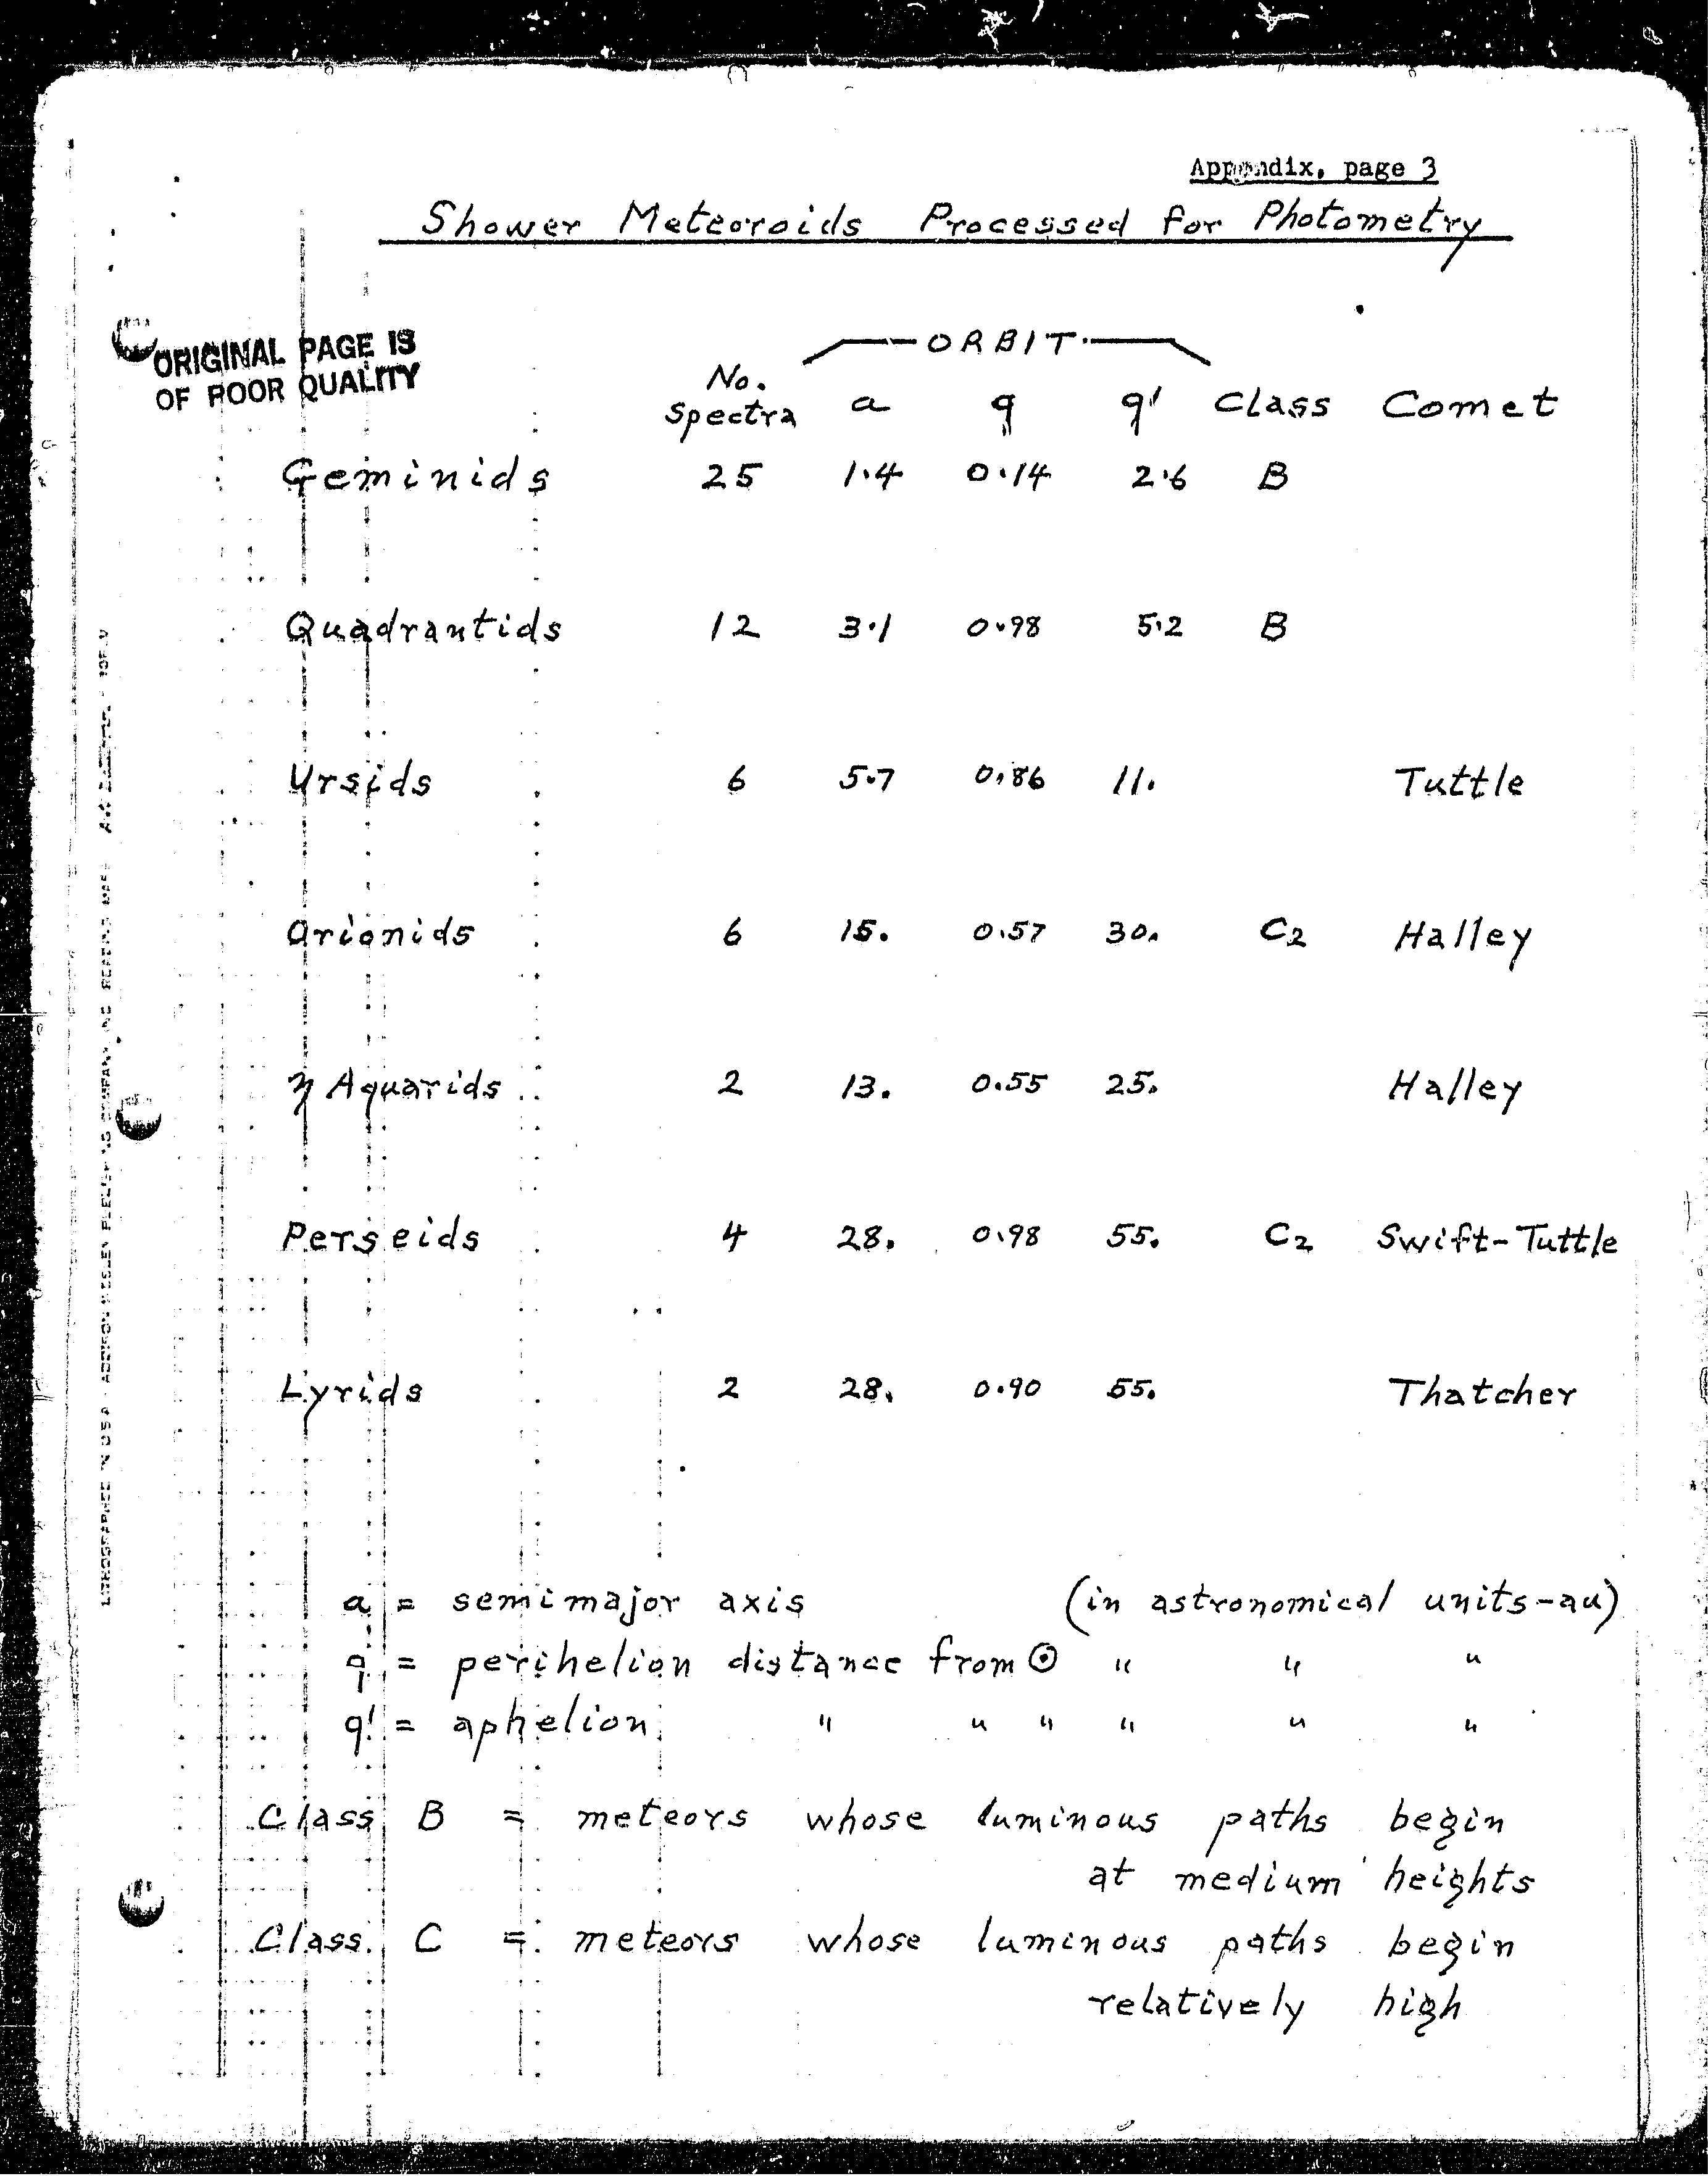 Appendix, page 3
Shower Meteoroids Processed for Photometry
ORIGINAL PAGE IS
OF POOR QUALITY
ORBIT
No. Spectra a q q' Class Comet
Geminids 25 1.4 0.14 2.6 B
Quadrantids 12 3.1 0.98 5.2 B
Ursids 6 5.7 0.86 11. Tuttle
Orionids 6 15. 0.57 30. C2 Halley
η Aquarids 2 13. 0.55 25. Halley
Perseids 4 28. 0.98 55. C2 Swift-Tuttle
Lyrids 2 28. 0.90 55. Thatcher
a = semimajor axis (in astronomical units-au)
q = perihelion distance from ⊙ " " "
q' = aphelion " " " " " "
Class B = meteors whose luminous paths begin
at medium heights
Class C = meteors whose luminous paths begin
relatively high